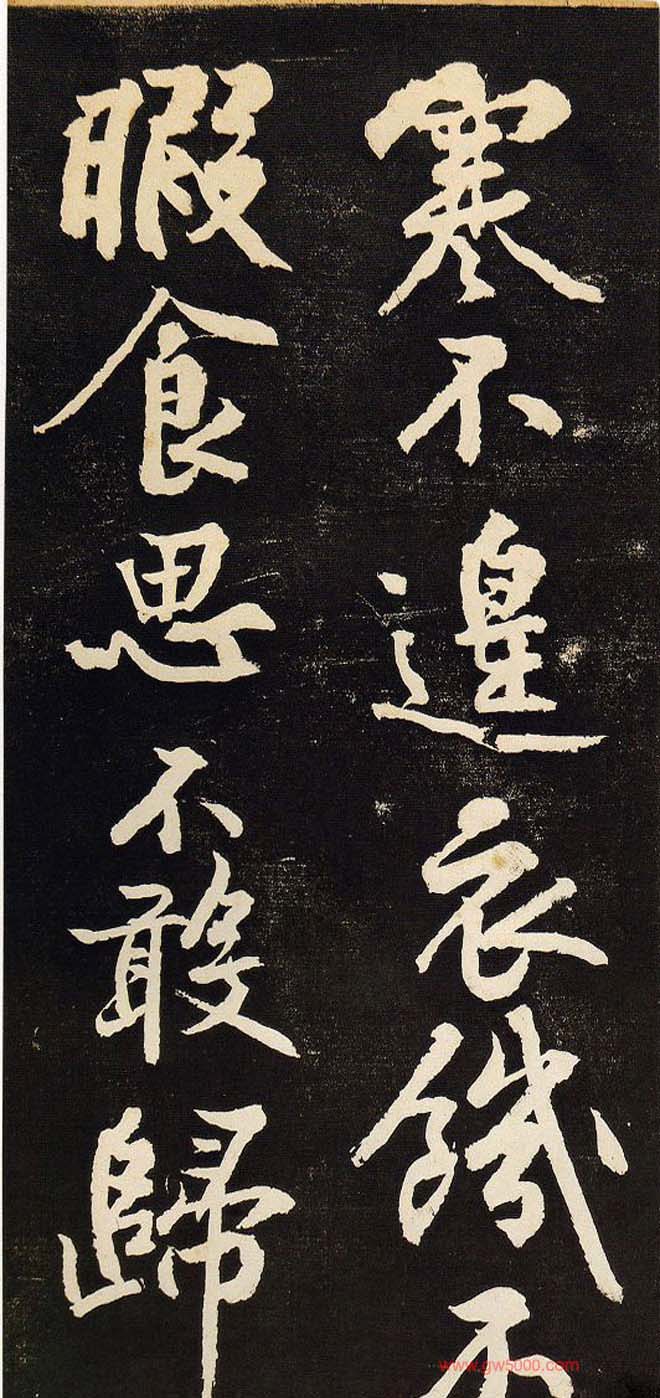 寒不遑衣饑不
暇食思不敢歸
www.gw5000.com